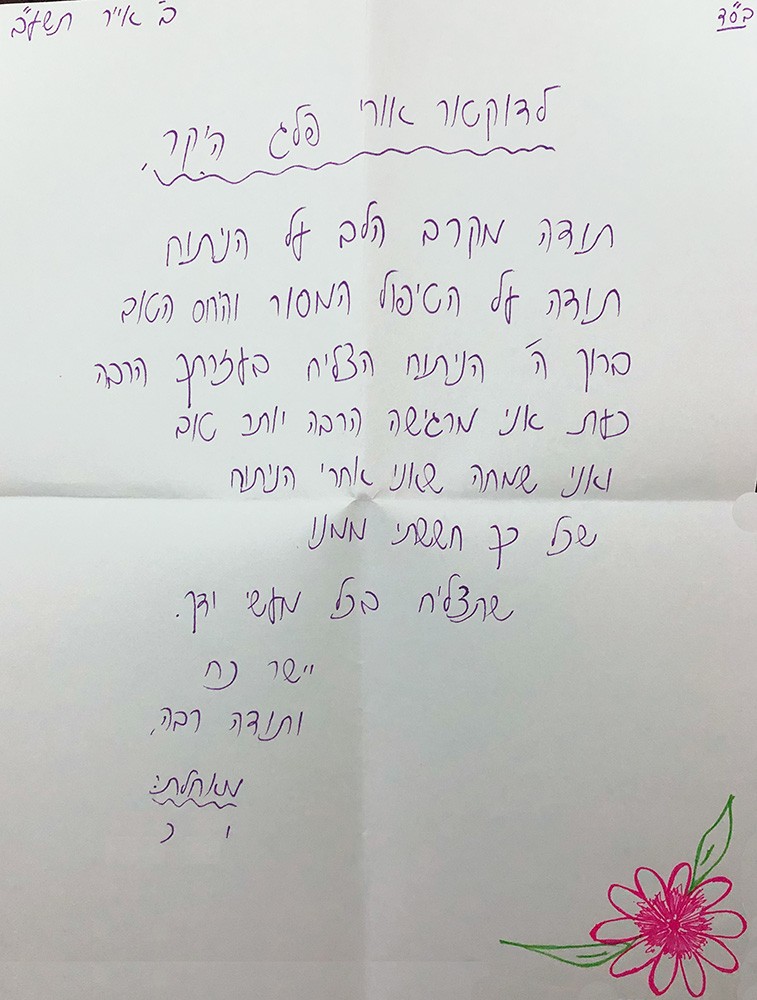 בס"ד
ב' אייר תשע"ב
לדוקטור אורי פלג היקר,
תודה מקרב הלב על הניתוח
תודה על הטיפול המסור והיחס הטוב
ברוך ה' הניתוח הצליח בעזרתך הרבה
כעת אני מרגישה הרבה יותר טוב
ואני שמחה שאני אחרי הניתוח
שכל כך חששתי ממנו
שתצליח בכל מעשי ידך.
יישר כח
ותודה רבה,
מאחלת:
י כ